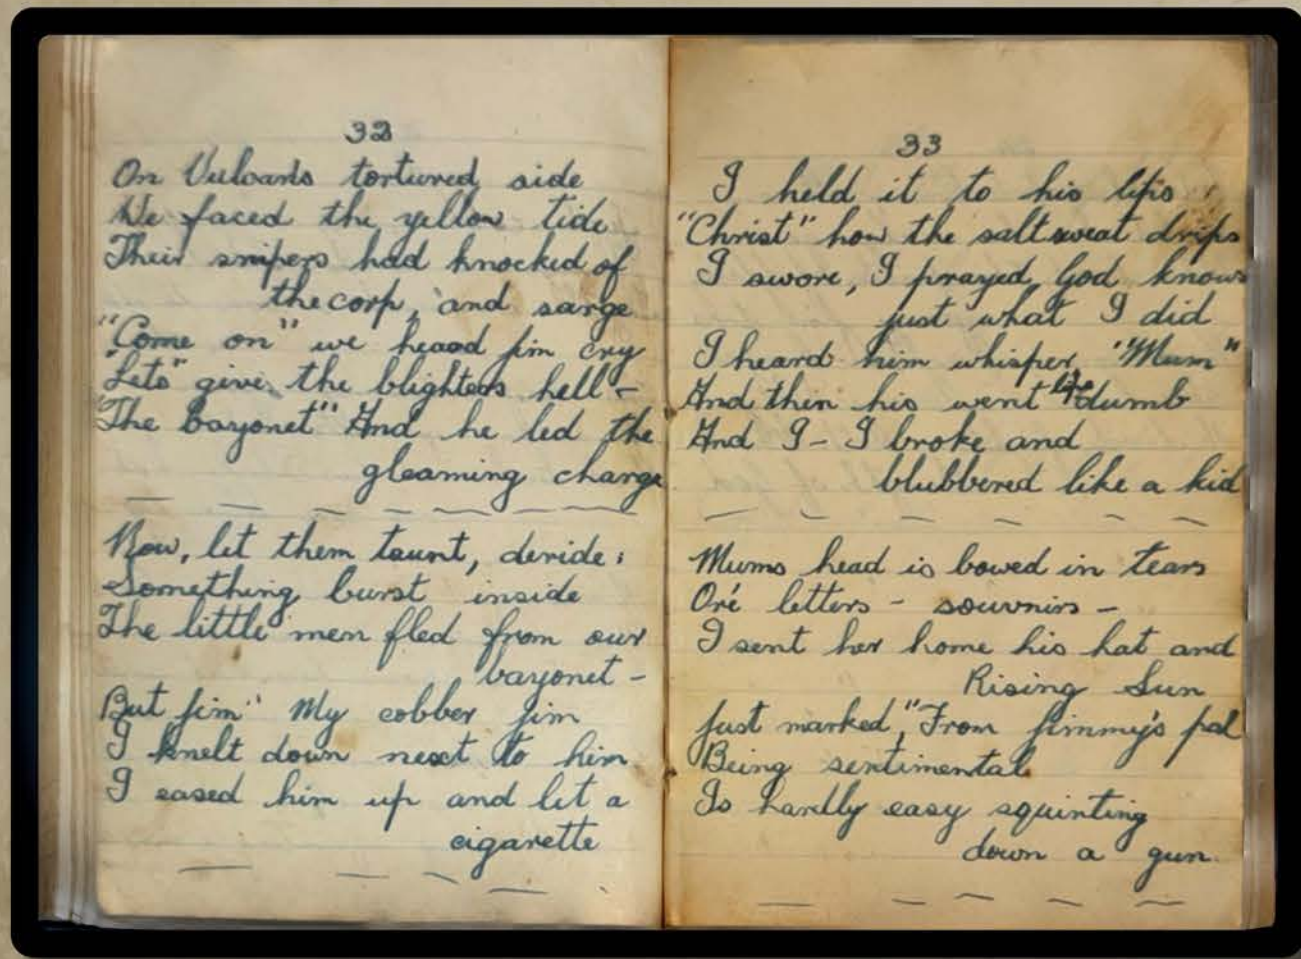 32
On Vulcans tortured side
We faced the yellow tide
Their snipers had knocked of
the corp, and sarge
"Come on" we heard Jim cry
"Lets" give the blighters hell -
"The bayonet" And he led the
gleaming charge
Now, let them taunt, deride;
Something burst inside
The little men fled from our
bayonet -
But Jim" My cobber Jim
I knelt down next to him
I eased him up and lit a
cigarette
33
I held it to his lips
"Christ" how the salt sweat drips
I swore, I prayed, God knows
just what I did
I heard him whisper "Mum"
And then his went life dumb
And I - I broke and
blubbered like a kid
Mums head is bowed in tears
Oré letters - souvnirs -
I sent her home his hat and
Rising Sun
Just marked, "From Jimmy's pal
Being sentimental
Is hardly easy squinting
down a gun.